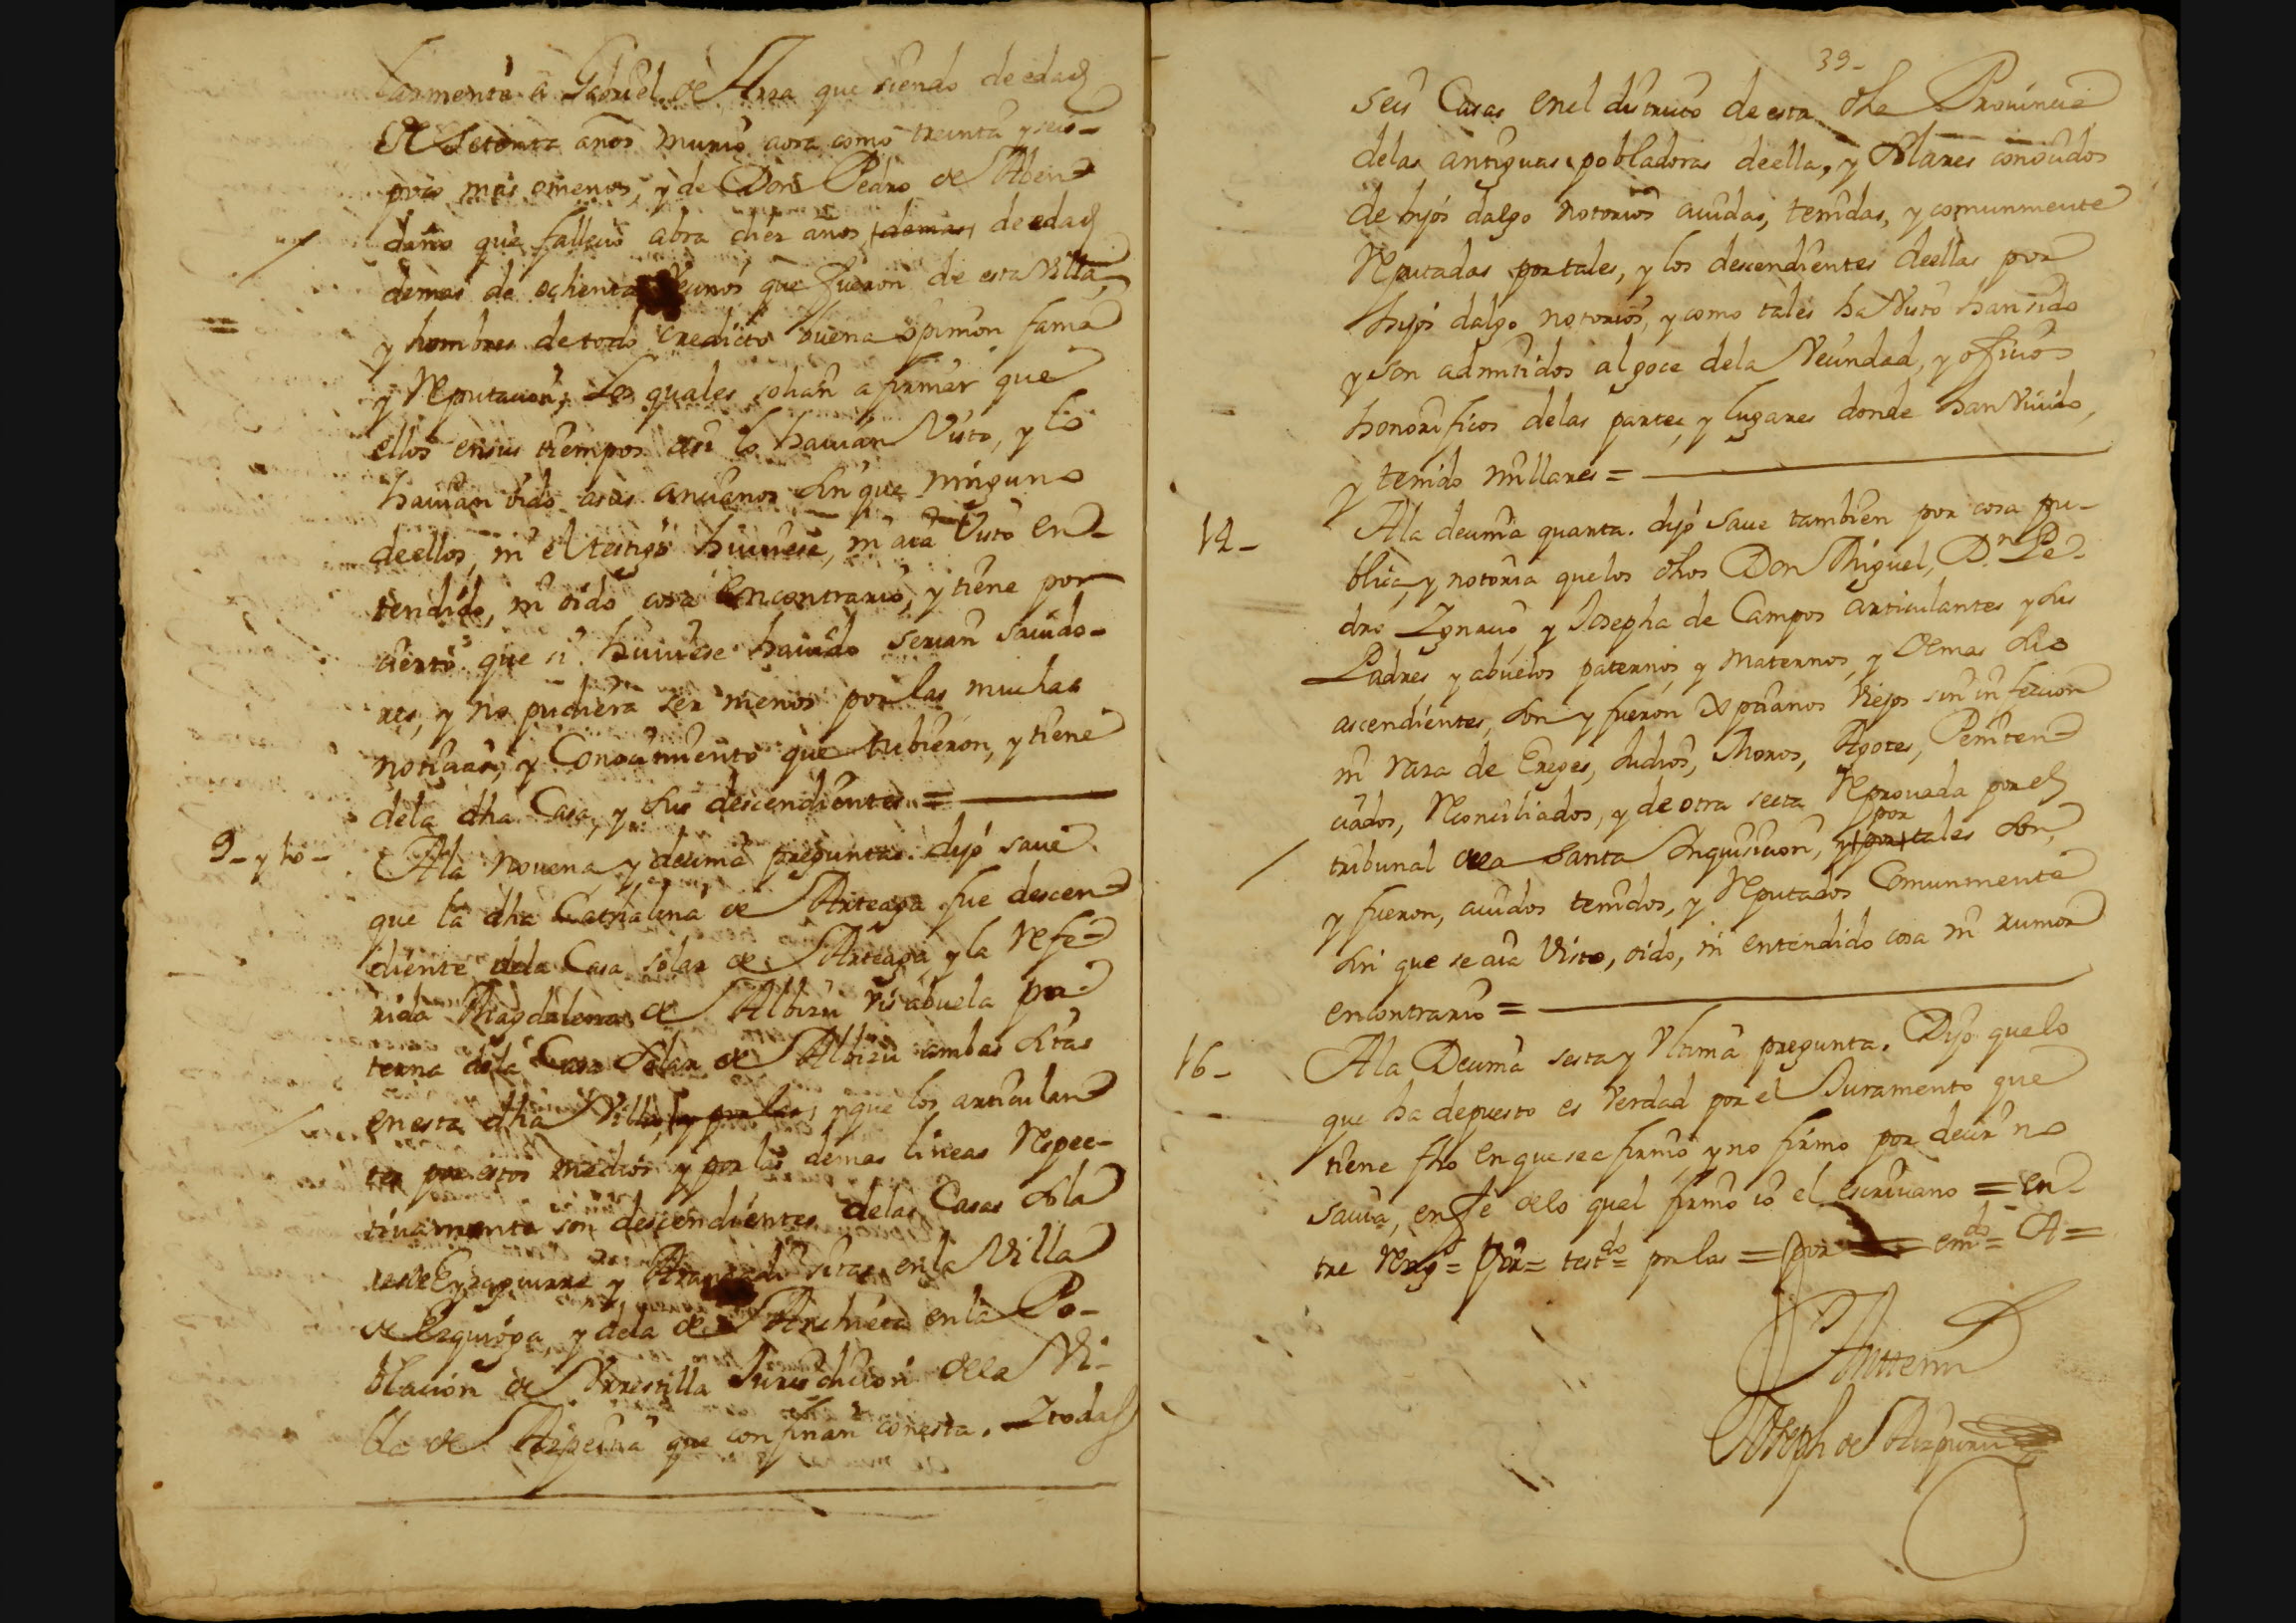 larmente a Gabriel de Arra que siendo de edad
de setenta años murio aora como treinta y seis
poco mas omenos, y de Don Pedro de Aben-
daño que fallecio abra diez años, demas, de edad
demas de ochenta Vecinos que fueron de esta Villa,
y hombres de todo credicto buena opinion fama
y Reputacion, Los quales solian afirmar que
ellos ensus tiempos asi lo havian Visto, y lo
havian oido asus ancianos sin que ninguno
deellos, ni el testigo huviese, ni aia Visto en-
tendido, ni oido cosa encontrario, y tiene por
cierto que si huviese havido serian savido-
res, y no pudiera ser menos por las muchas
noticias, y Conocimiento que tubieron, y tiene
dela dha Casa, y sus descendientes =
9 - y 10 -
Ala novena y decima preguntas. dijó save
que la dha Cathalina de Arteaga fue descen-
diente dela Casa solar de Arteaga, y la refe-
rida Magdalena de Albizu visabuela pa-
terna dela Casa Solar de Albizu ambas sitas
enesta dha Villa, y por las, y que los articulan-
tes por estos medios y por las demas lineas Respec-
tivamente son descendientes delas Casas sola-
res de Eyzaguirre y sitas en la Villa
de Ezquioga, y dela de Anchieta en la Po-
blacion de Urrestilla Jurisdicion dela Vi-
lla de Azpeitia que confinan conesta. Y todas
39-
seis Casas enel distrito de esta dha Provincia
delas antiguas pobladoras deella, y solares conocidos
de hijos dalgo notorios avidas, tenidas, y comunmente
Reputadas portales, y los descendientes deellas por
hijos dalgo notorios, y como tales ha Visto han sido
y son admitidos algoce dela Vecindad, y oficios
honorificos delas partes y lugares donde han Vivido,
y tenido millares =
14 -
Ala decima quarta. dijó save tambien por cosa pu-
blica, y notoria quelos dhos Don Miguel, D.n Pe-
dro Ygnacio y Josepha de Campos articulantes y sus
Padres y abuelos paternos, y maternos, y demas sus
ascendientes, son y fueron Xptianos Viejos sin infeccion
ni raza de Ereges, Judios, Moros, Agotes, Peniten-
ciados, Reconciliados, y de otra secta Reprovada por el
por
tribunal dela santa Inquisicion, y portales son,
y fueron, avidos tenidos, y Reputados Comunmente
sin que se aia Visto, oido, ni entendido cosa ni rumor
encontrario =
16 -
Ala Decima sesta y Vltima pregunta. Dijo quelo
que ha depuesto es verdad por el Juramento que
tiene fho en que se afirmó, y no firmo por decir no
savia, en fe delo qual firmo io el escrivano = en-
tre Reng.s = por = test.do = por las = por = em.do = A =
Ante mi
Joseph de Aizpuru